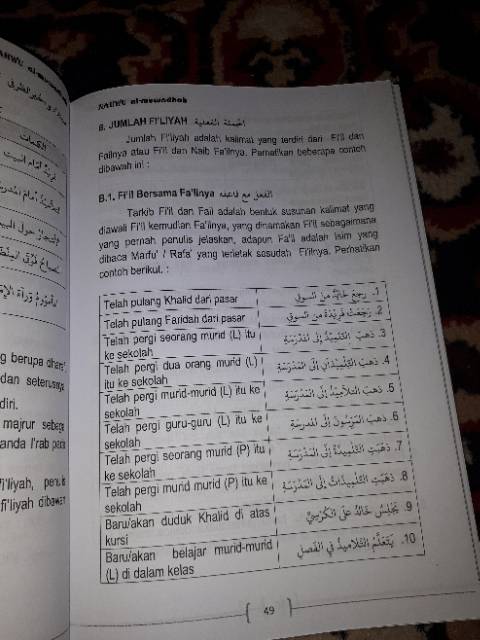 الكلمات
g berupa dharf,
dan seterusnya
diri.
majrur sebaga
anda I'rab pada
fi'liyah dibawah
NAHWU al-muwadhoh
B. JUMLAH FI'LIYAH الجملة الفعلية
Jumlah Fi'liyah adalah kalimat yang terdiri dari Fi'il dan
Failnya atau Fi'il dan Naib Fa'ilnya. Perhatikan beberapa contoh
dibawah ini :
B.1. Fi'il Bersama Fa'ilnya الفعل مع فاعله
Tarkib Fi'il dan Fail adalah bentuk susunan kalimat yang
diawali Fi'il kemudian Fa'ilnya, yang dinamakan Fi'il sebagaimana
yang pernah penulis jelaskan, adapun Fa'il adalah Isim yang
dibaca Marfu' / Rafa' yang terletak sesudah Fi'ilnya. Perhatikan
contoh berikut. :
Telah pulang Khalid dari pasar
1. رجع خالد من السوق
Telah pulang Faridah dari pasar
2. رجعت فريدة من السوق
Telah pergi seorang murid (L) itu
ke sekolah
3. ذهب التلميذ إلى المدرسة
Telah pergi dua orang murid (L)
itu ke sekolah
4. ذهب التلميذان إلى المدرسة
Telah pergi murid-murid (L) itu ke
sekolah
5. ذهب التلاميذ إلى المدرسة
Telah pergi guru-guru (L) itu ke
sekolah
6. ذهب المدرسون إلى المدرسة
Telah pergi seorang murid (P) itu
ke sekolah
7. ذهبت التلميذة إلى المدرسة
Telah pergi murid murid (P) itu ke
sekolah
8. ذهبت التلميذات إلى المدرسة
Baru/akan duduk Khalid di atas
kursi
9. يجلس خالد على الكرسي
Baru/akan belajar murid-murid
(L) di dalam kelas
10. يتعلم التلاميذ في الفصل
49